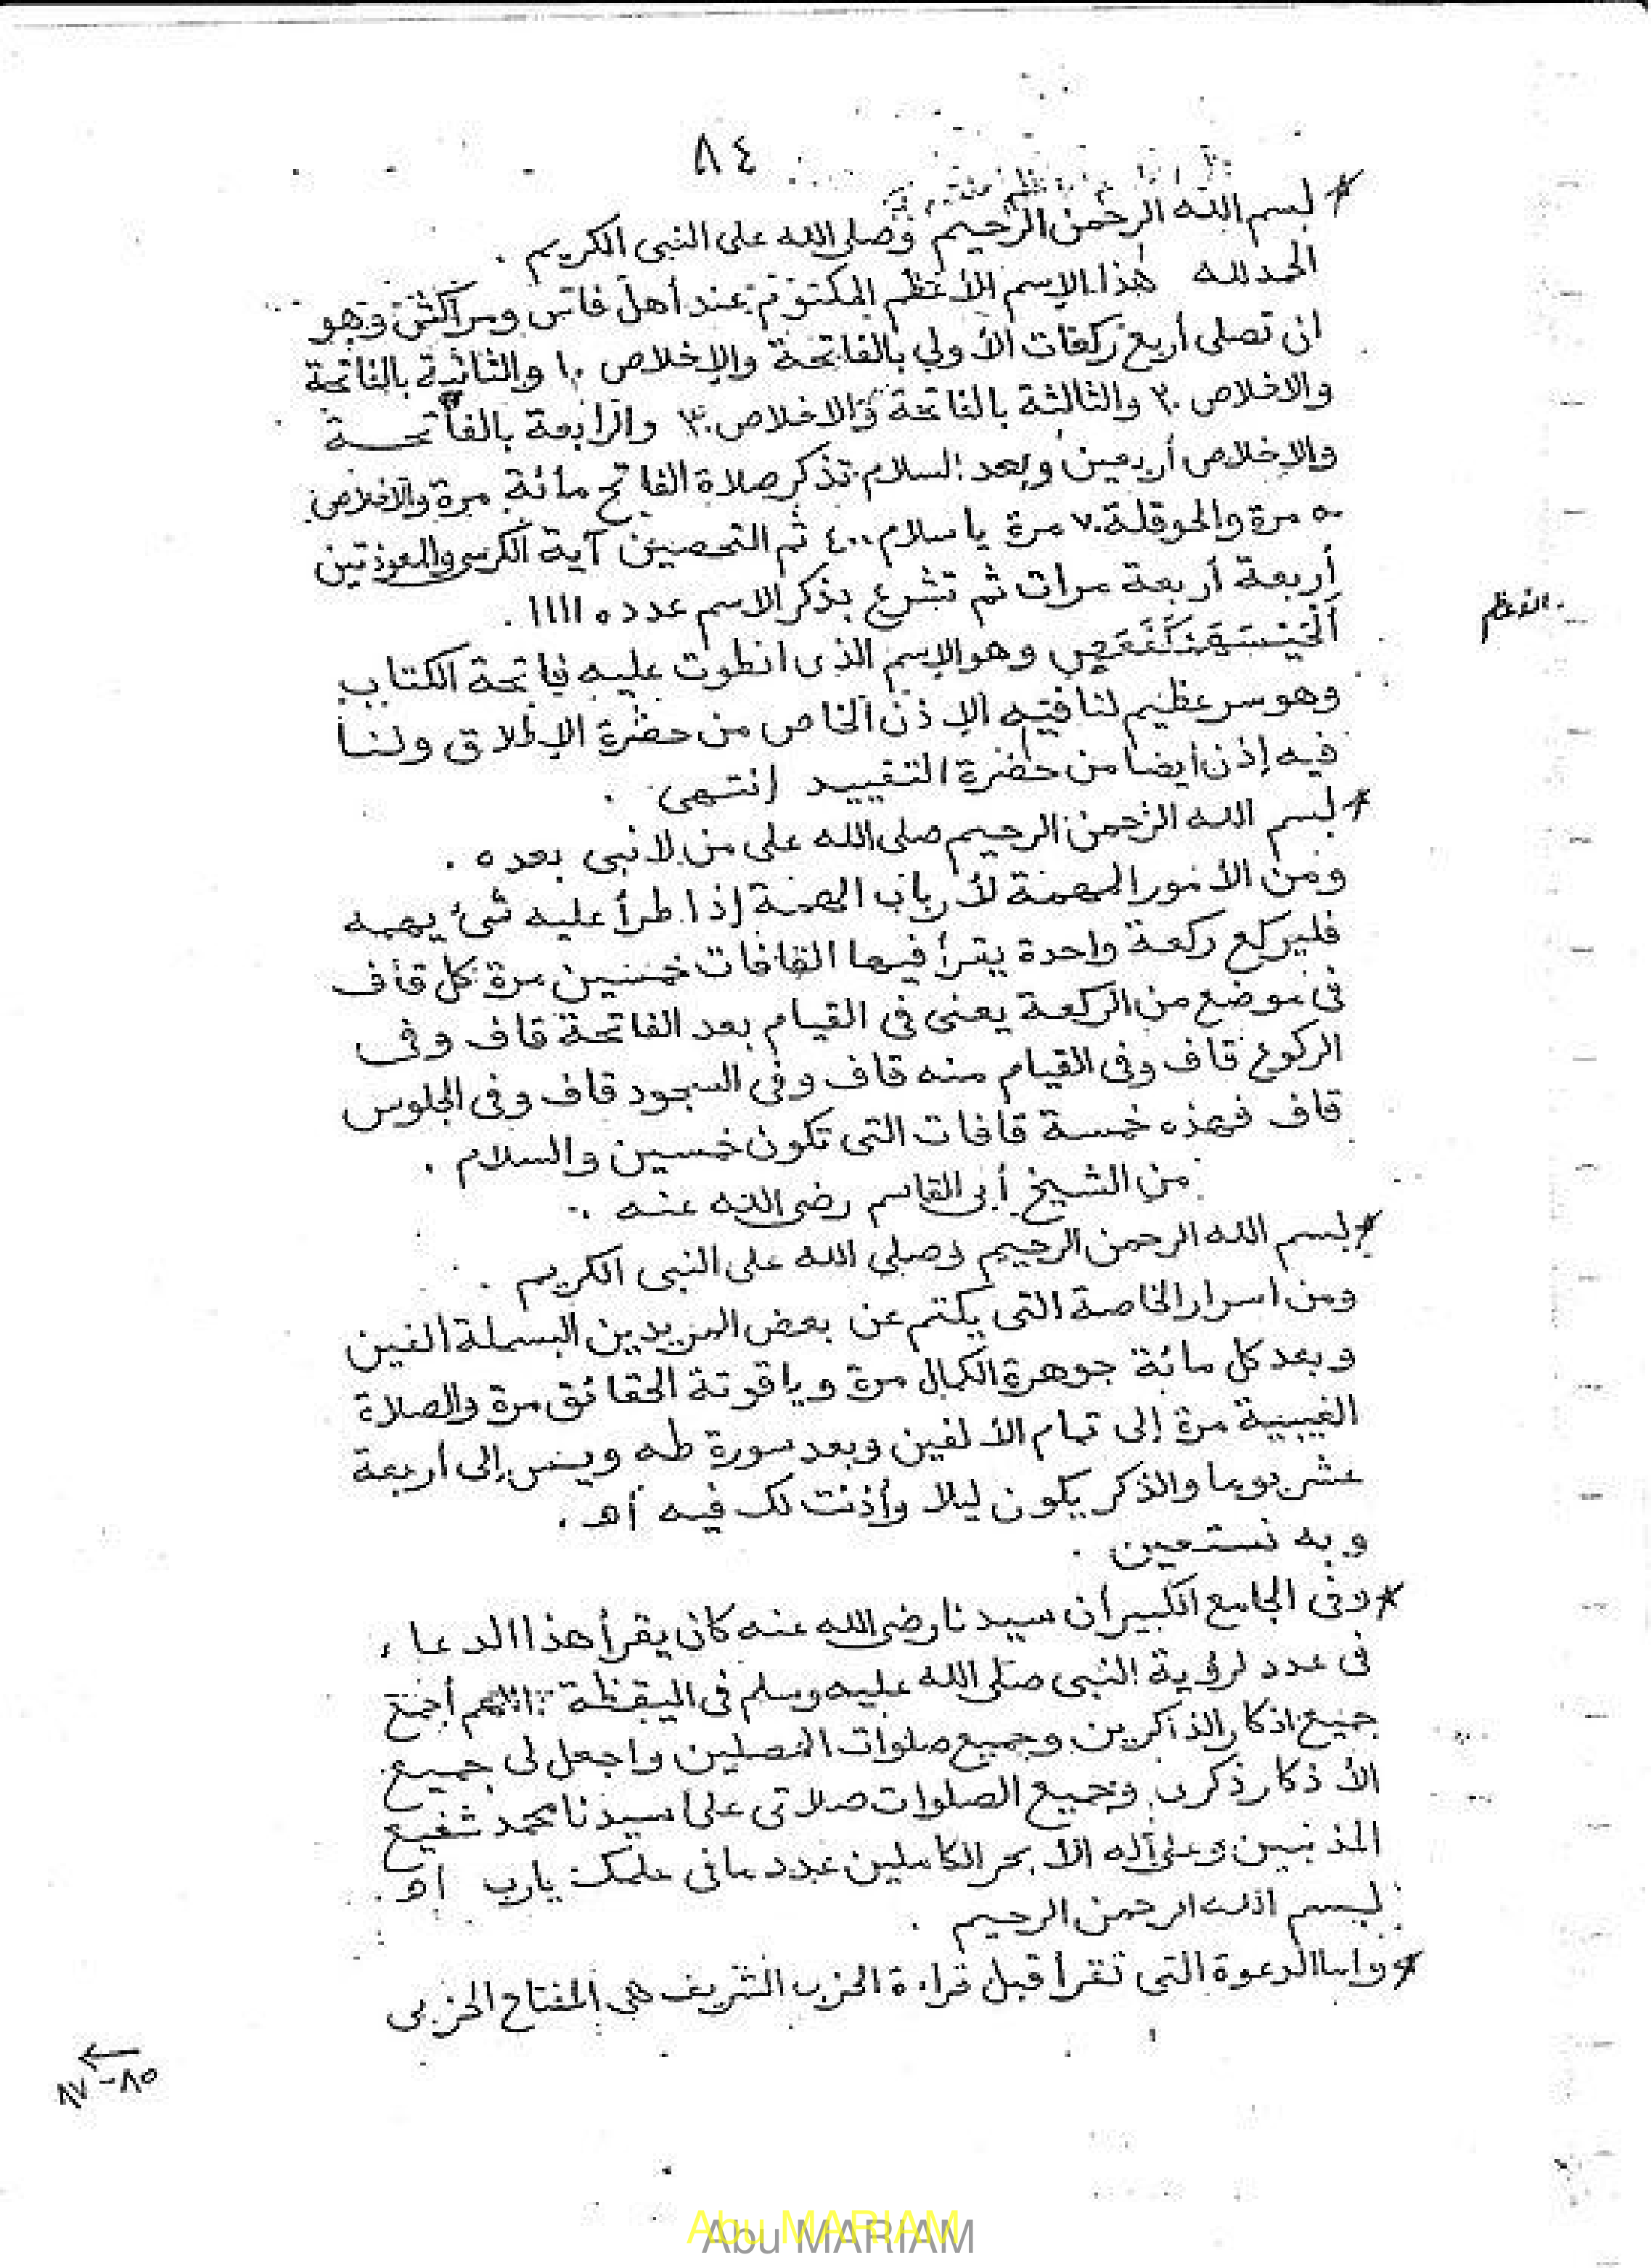 ٨٤
* بسم الله الرحمن الرحيم وصلى الله على النبى الكريم .
الحمد لله هذا الإسم الأعظم المكتوم عند أهل فاس ومراكش وهو
ان تصلى أربع ركعات الأولي بالفاتحة والإخلاص ١٠ والثانية بالفاتحة
والاخلاص ٢٠ والثالثة بالفاتحة والاخلاص ٣٠ والرابعة بالفاتحة
والإخلاص أربعين وبعد السلام تذكر صلاة الفاتح مائة مرة والاخلاص
٥٠ مرة والحوقلة ٧٠ مرة يا سلام ٤٠٠ ثم التحصين آية الكرسى والمعوذتين
أربعة أربعة مرات ثم تشرع بذكر الاسم عدده ١١١١ .
الأعظم
وهو الإسم الذى انطوت عليه فاتحة الكتاب
وهو سر عظيم لنا فيه الإذن الخاص من حضرة الإطلاق ولنا
فيه إذن أيضا من حضرة التقييد انتهى .
* بسم الله الرحمن الرحيم صلى الله على من لا نبى بعده .
ومن الأمور المهمة لأرباب الهمة إذا طرأ عليه شئ يهمه
فليركع ركعة واحدة يقرأ فيها القافات خمسين مرة كل قاف
فى موضع من الركعة يعنى فى القيام بعد الفاتحة قاف وفى
الركوع قاف وفى القيام منه قاف وفى السجود قاف وفى الجلوس
قاف فهذه خمسة قافات التى تكون خمسين والسلام .
من الشيخ أبى القاسم رضى الله عنه .
* بسم الله الرحمن الرحيم وصلى الله على النبى الكريم .
ومن اسرار الخاصة التى يكتم عن بعض المريدين البسملة الفين
وبعد كل مائة جوهرة الكمال مرة وياقوتة الحقائق مرة والصلاة
الغيبية مرة إلى تمام الألفين وبعد سورة طه ويس إلى أربعة
عشر يوما والذكر يكون ليلا وأذنت لك فيه أه .
وبه نستعين .
* وفى الجامع الكبير أن سيدنا رضى الله عنه كان يقرأ هذا الدعاء
فى عدد لرؤية النبى صلى الله عليه وسلم فى اليقظة : اللهم أجمع
جميع اذكار الذاكرين وجميع صلوات المصلين واجعل لى جميع
الأذكار ذكرى وجميع الصلوات صلاتى على سيدنا محمد شفيع
المذنبين وعلى آله الأبحر الكاملين عدد ما فى علمك يارب أه .
بسم الله الرحمن الرحيم .
* واما الدعوة التى تقرأ قبل قراءة الحزب الشريف هى المفتاح الحزبى
←
٨٥-٨٧
Abu MARIAM